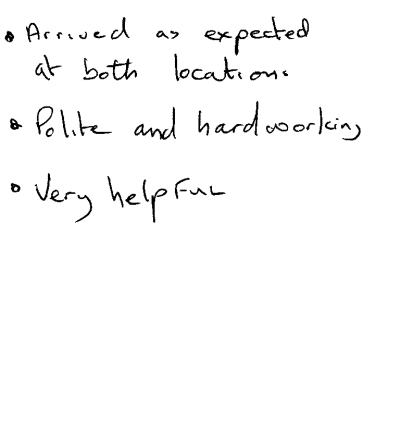 • Arrived as expected
at both locations.
• Polite and hardworking
• Very helpful